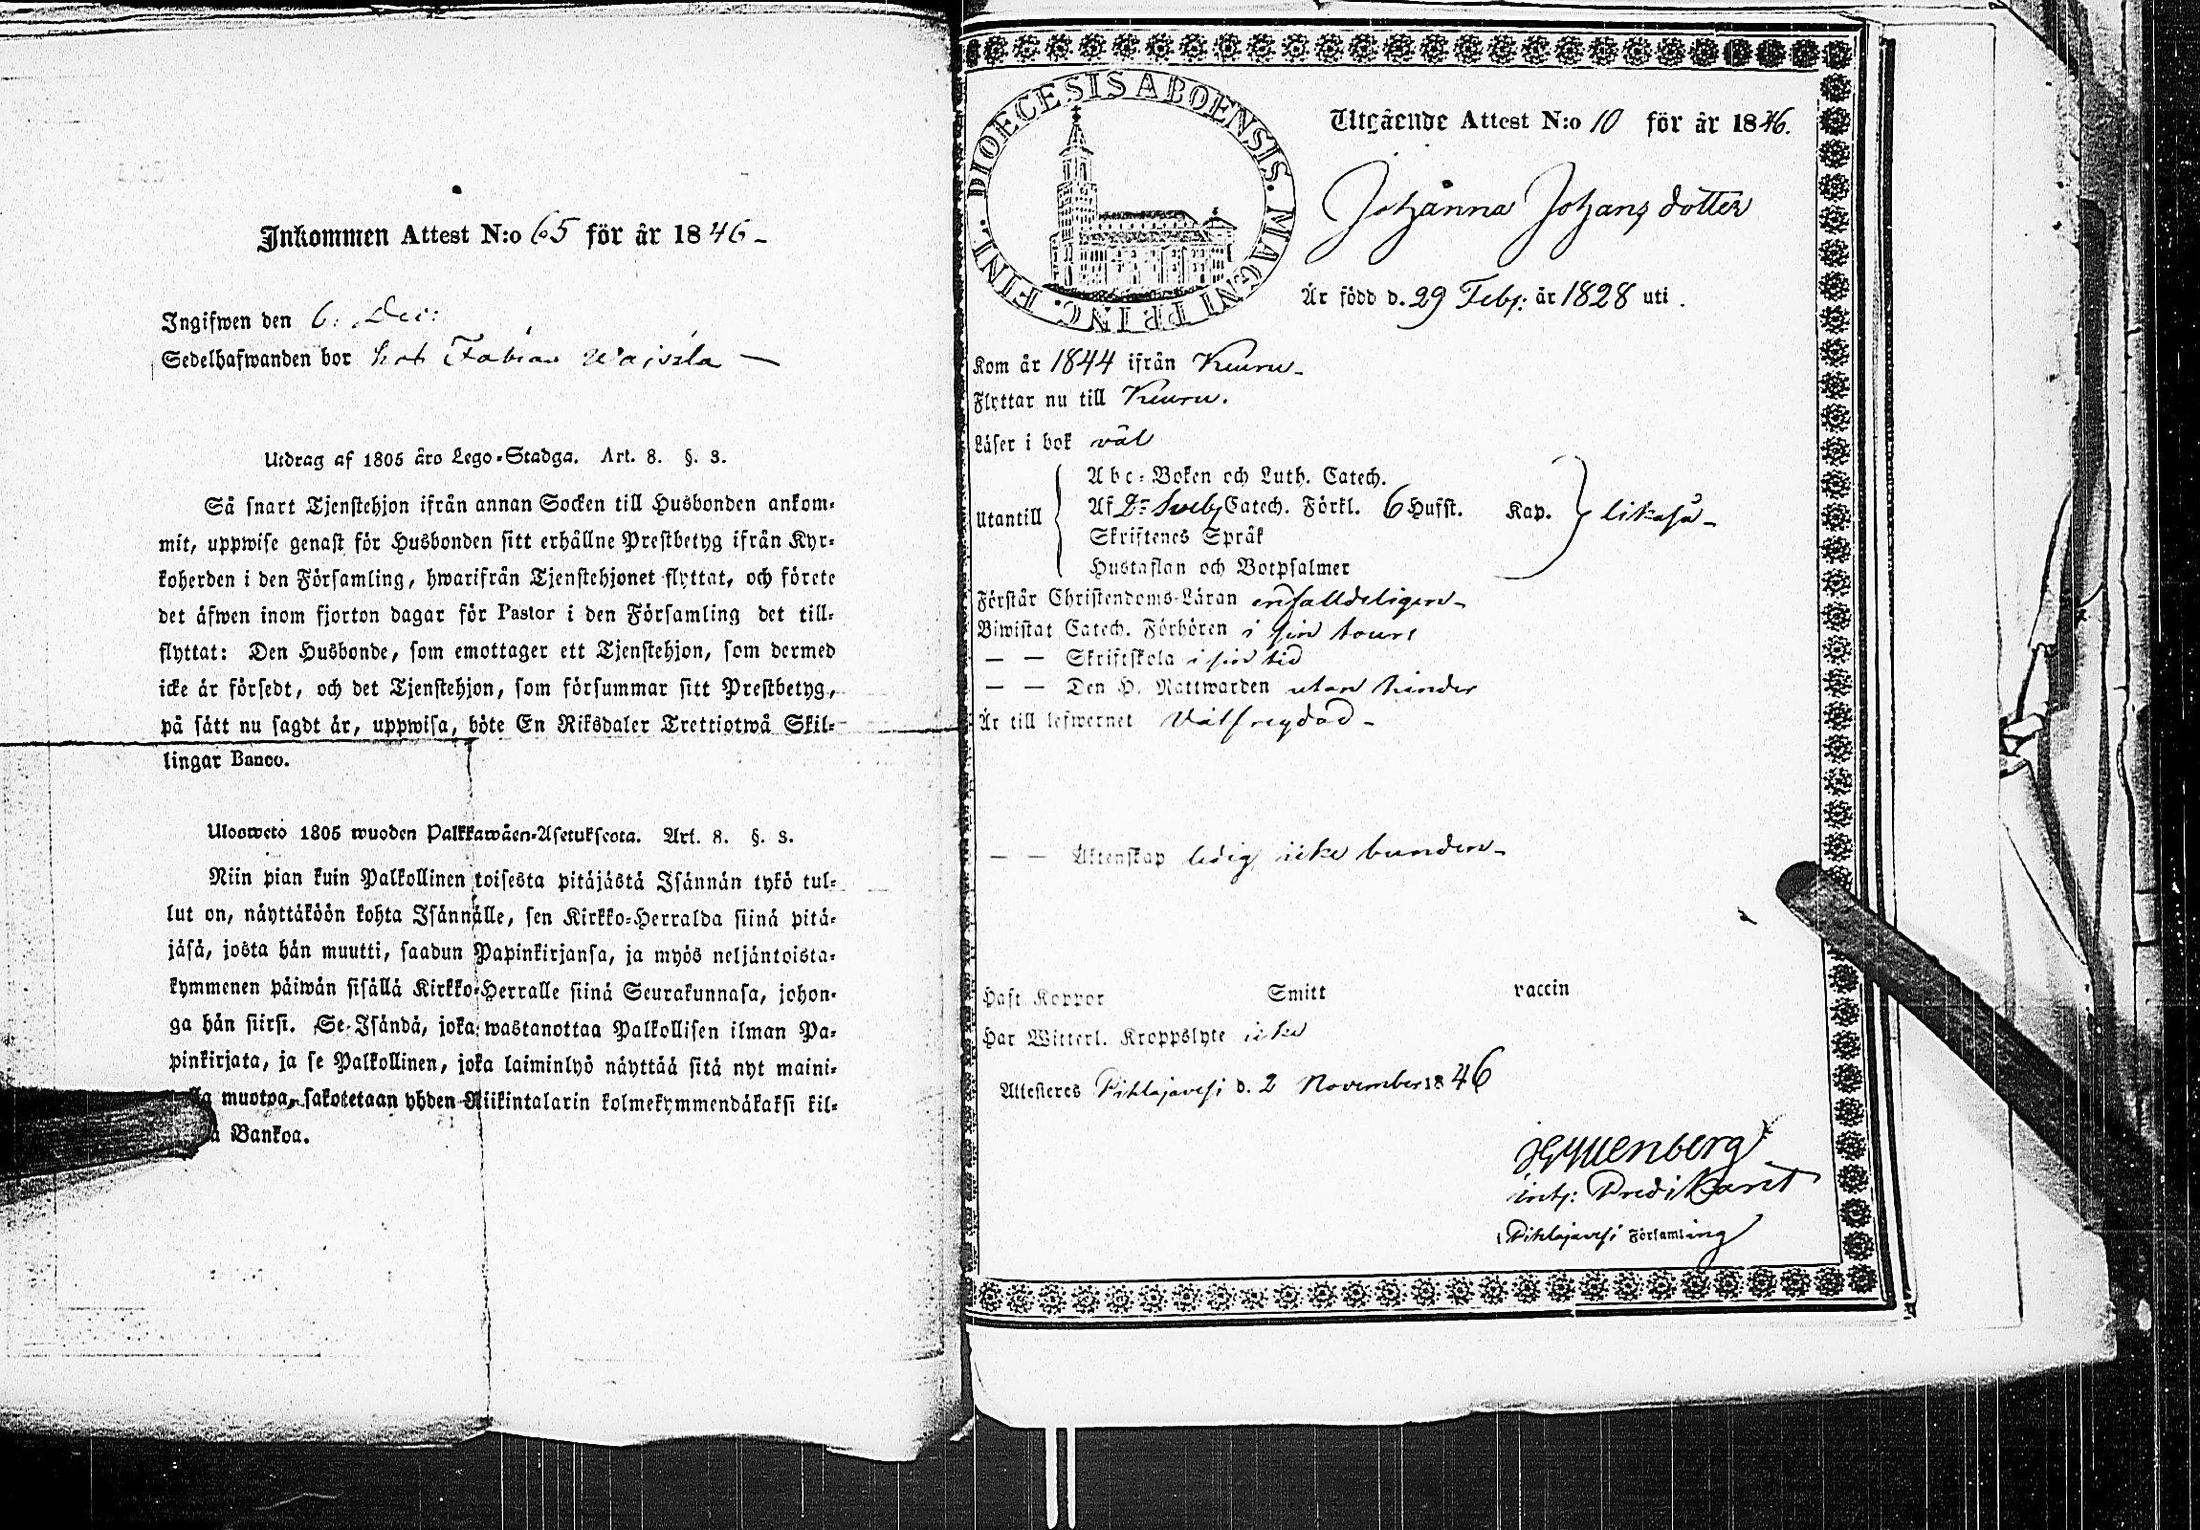 Inkommen Attest N:o 65 för år 1846 -
Ingifwen den 6. Dec:
Sedelhafwanden bor hos Fabian
Utdrag af 1805 års Lego-Stadga. Art. 8. §. 3.
Så snart Tjenstehjon ifrån annan Socken till Husbonden ankom-
mit, uppwise genast för Husbonden sitt erhållne Prestbetyg ifrån Kyr-
koherden i den Församling, hwarifrån Tjenstehjonet flyttat, och förete
det äfwen inom fjorton dagar för Pastor i den Församling det till-
flyttat: Den Husbonde, som emottager ett Tjenstehjon, som dermed
icke är försedt, och det Tjenstehjon, som försummar sitt Prestbetyg,
på sätt nu sagdt är, uppwisa, böte En Riksdaler Trettiotwå Skil-
lingar Banco.
Uloswetö 1805 wuoden Palkkawäen-Asetuksesta. Art. 8. §. 3.
Niin pian kuin Palkollinen toisesta pitäjästä Isännän tykö tul-
lut on, näyttäköön kohta Isännälle, sen Kirkko-Herralda siinä pitä-
jäsä, josta hän muutti, saadun Papinkirjansa, ja myös neljäntoista-
kymmenen päiwän sisällä Kirkko-Herralle siinä Seurakunnasa, johon-
ga hän siirsi. Se Isändä, joka wastanottaa Palkollisen ilman Pa-
pinkirjata, ja se Palkollinen, joka laiminlyö näyttää sitä nyt maini-
muotoa, sakotetaan yhden Riikintalarin kolmekymmendäkaksi kil-
Bankoa.
DIOECESIS ABOENSIS. MAGNI PRINC. FINL.
Utgående Attest N:o 10 för år 1846.
Johanna Johans dotter
Är född d. 29 Febr: år 1828 uti .
Kom år 1844 ifrån Keuru -
Flyttar nu till Keuru.
Läser i bok väl
Abc-Boken och Luth. Catech.
Utantill Af Dr Sveb. Catech. Förkl. 6 Hufst. Kap. likaså -
Skriftenes Språk
Hustaflan och Botpsalmer
Förstår Christendoms-Läran enfalldeligen -
Biwistat Catech. Förhören i sin tour
— — Skriftskola i sin tid
— — Den H. Nattwarden utan hinder
Är till lefwernet Välfreydad -
— — Äktenskap ledig, icke bunden -
Haft Koppor Smitt vaccin
Har Witterl. Kroppslyte icke
Attesteras Pihlajavesi d. 2 November 1846
JGyllenberg
Predikant
i Pihlajavesi Församling